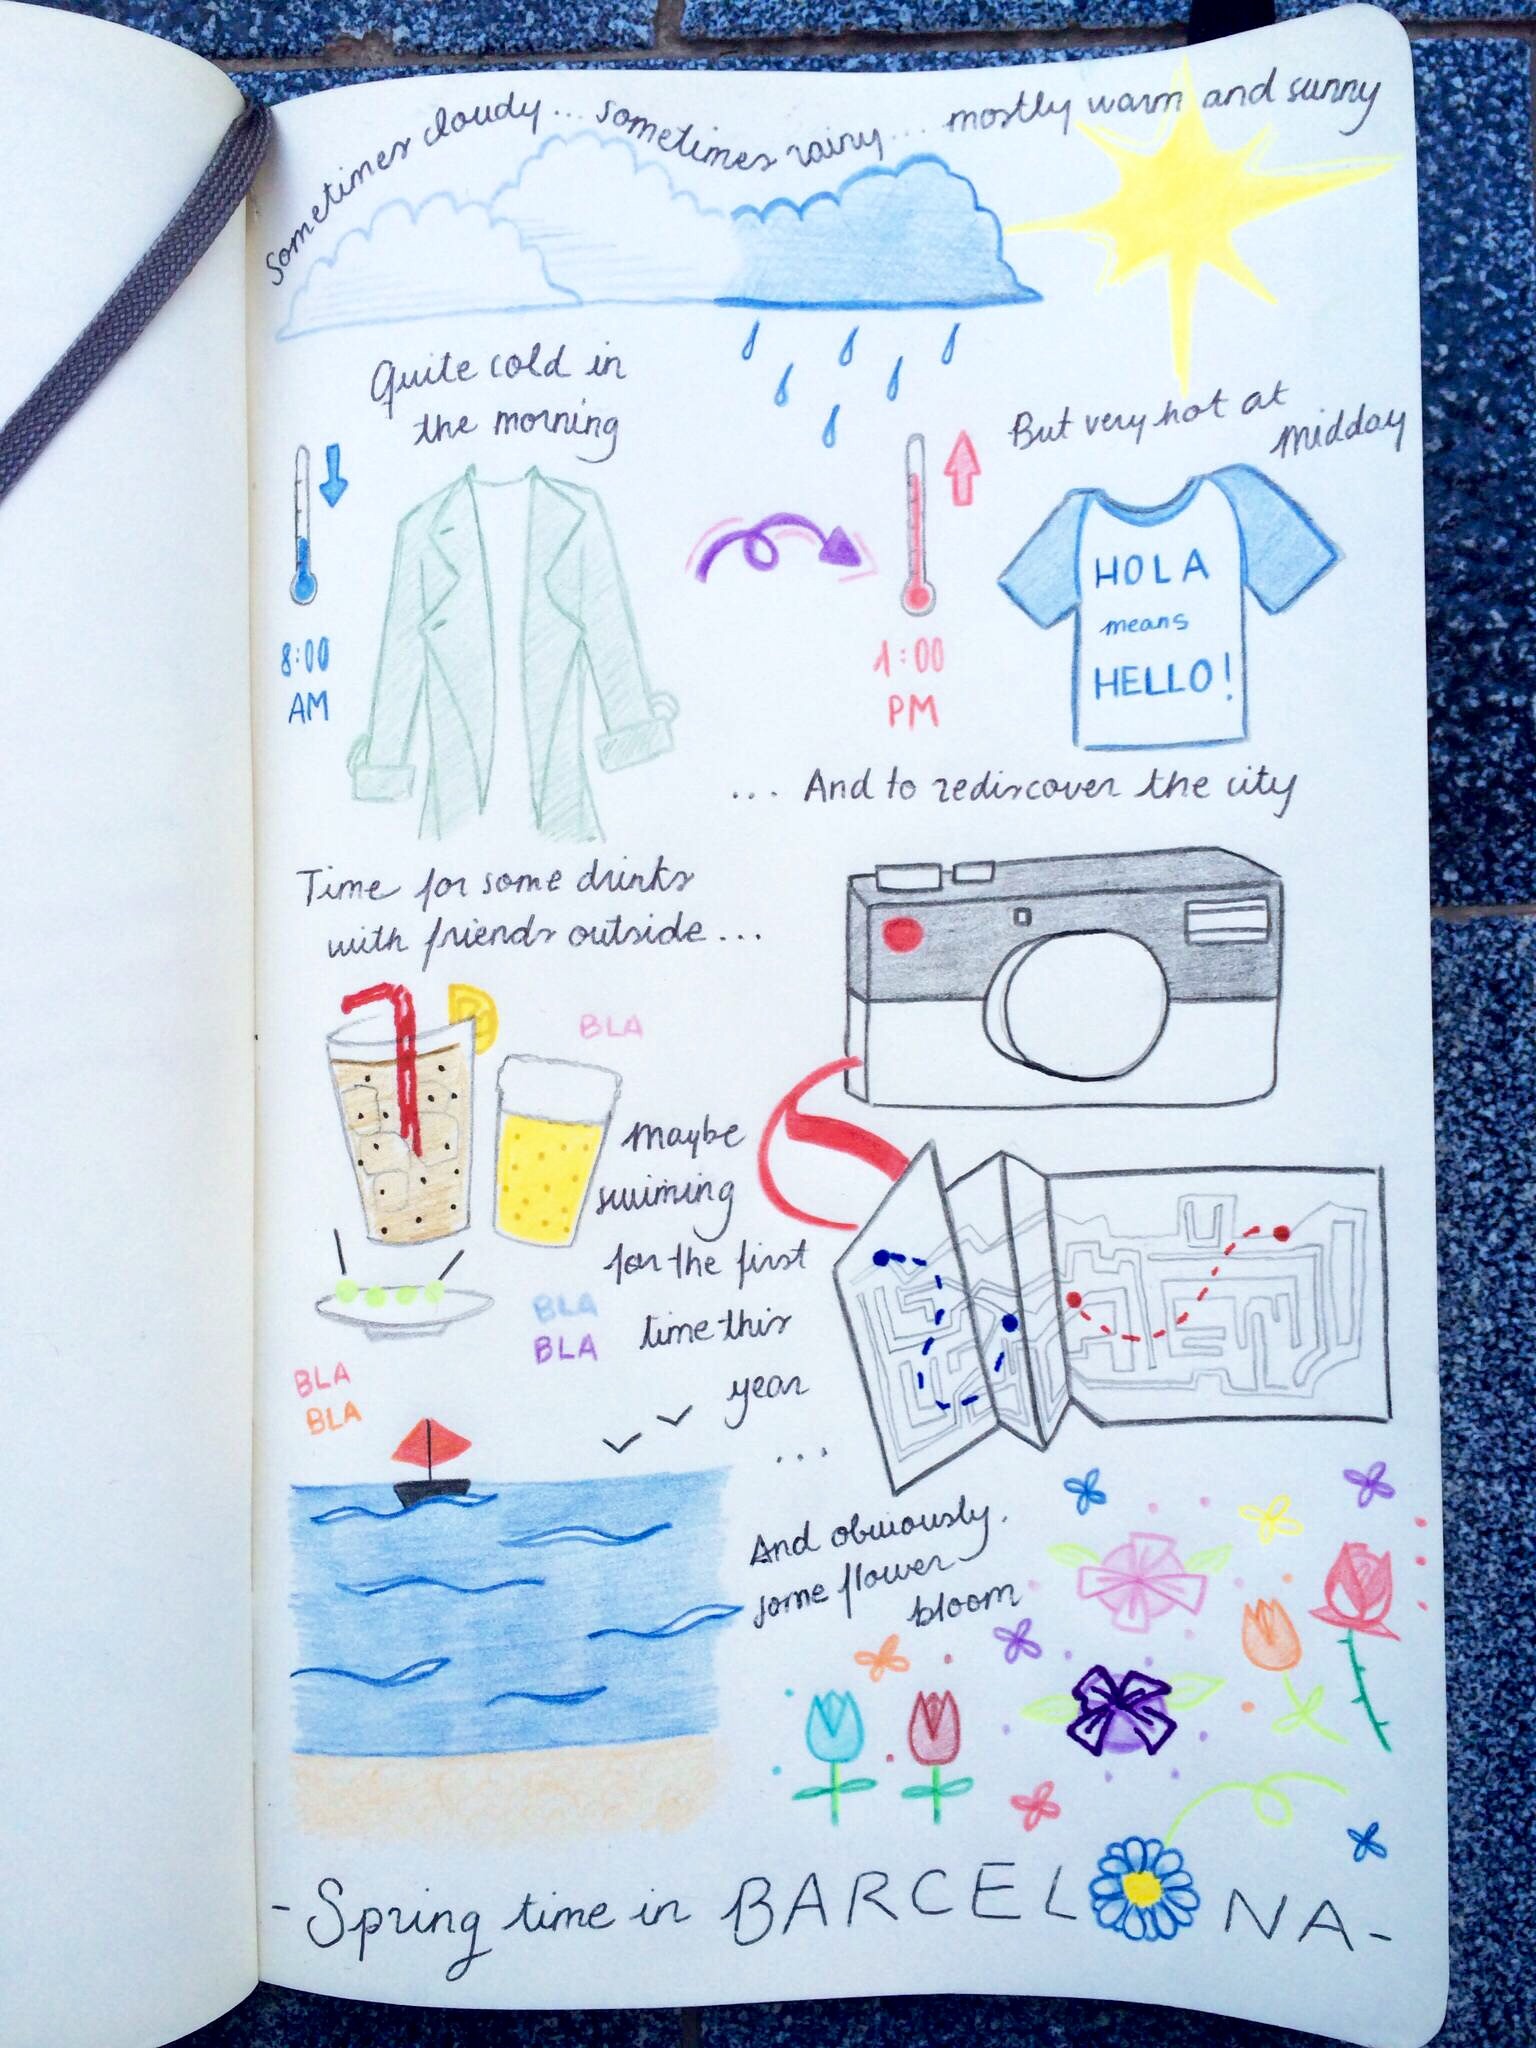 sometimes cloudy... sometimes rainy... mostly warm and sunny
Quite cold in
the morning
But very hot at
midday
8:00
AM
1:00
PM
HOLA
means
HELLO!
... And to rediscover the city
Time for some drinks
with friends outside...
BLA
Maybe
swiming
for the first
time this
year
...
BLA
BLA
BLA
BLA
And obviously.
some flower
bloom
- Spring time in BARCELONA -